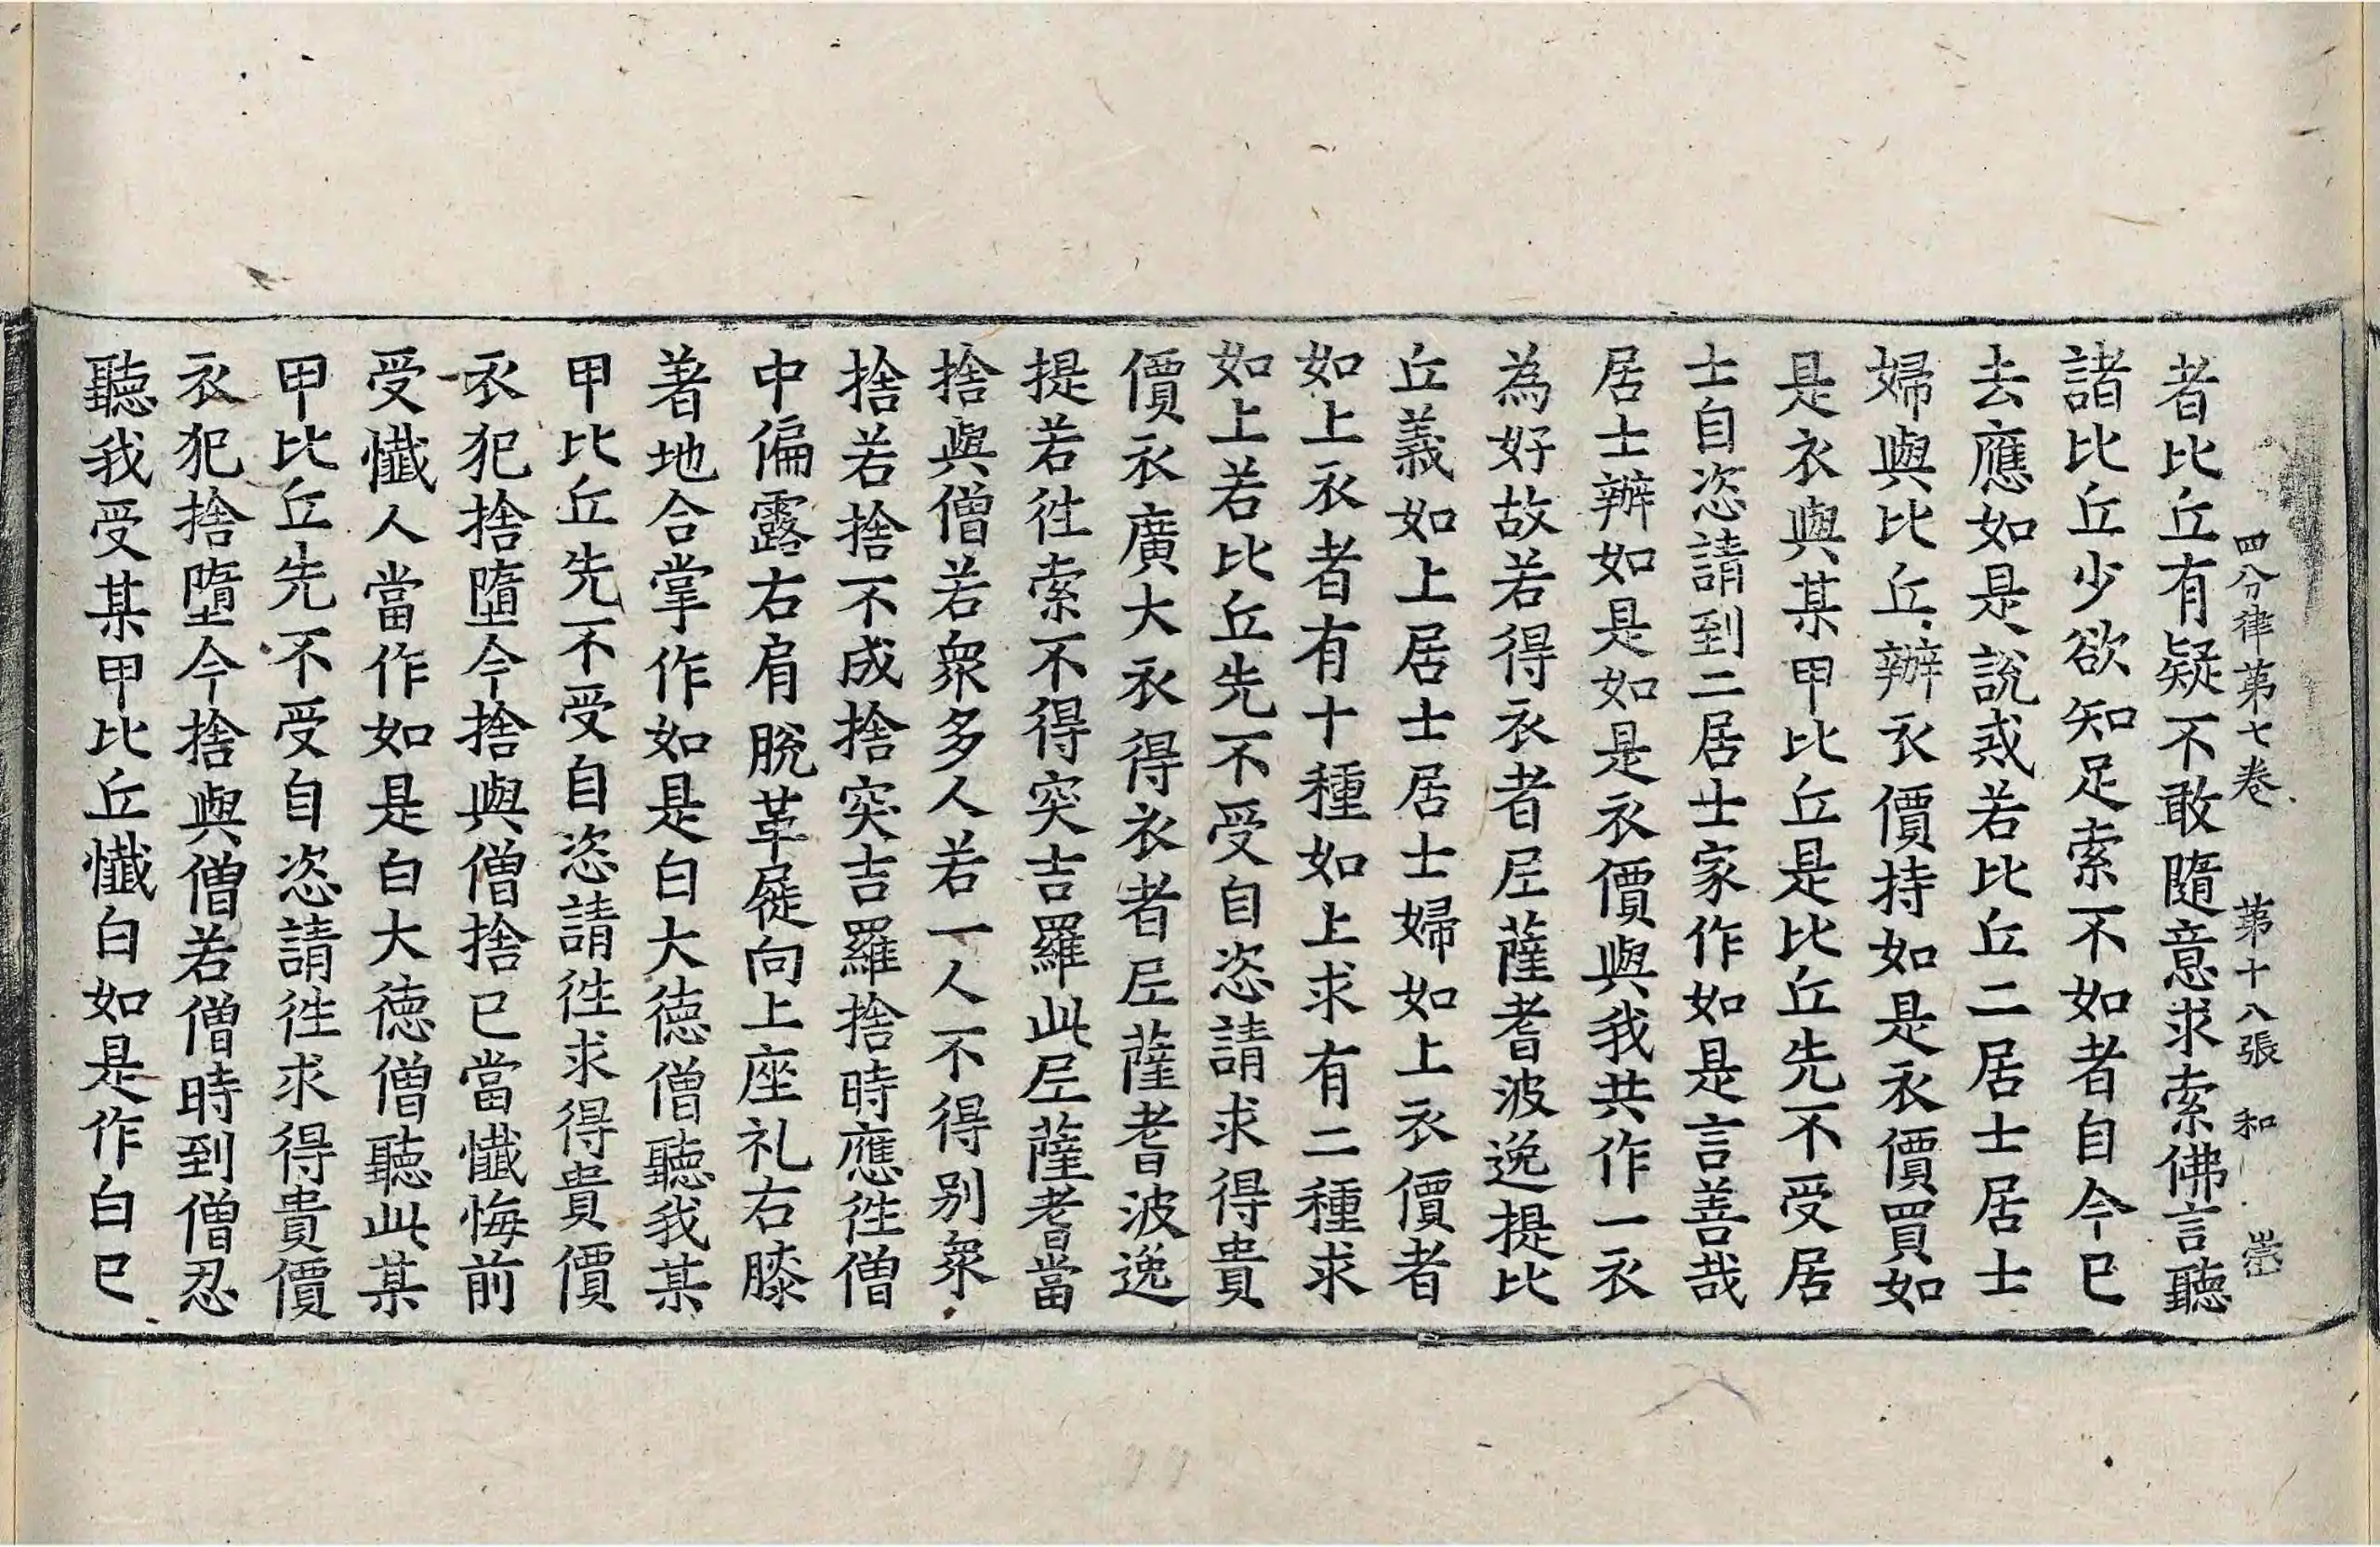 四分律第七卷　第十八張　和
者比丘有疑不敢隨意求索佛言聽
諸比丘少欲知足索不如者自今已
去應如是說或若比丘二居士居士
婦與比丘辦衣價持如是衣價買如
是衣與某甲比丘是比丘先不受居
士自恣請到二居士家作如是言善哉
居士辦如是如是衣價與我共作一衣
為好故若得衣者尼薩耆波逸提比
丘義如上居士居士婦如上衣價者
如上衣者有十種如上求有二種求
如上若比丘先不受自恣請求得貴
價衣廣大衣得衣者尼薩耆波逸
提若徃索不得突吉羅此尼薩耆當
捨與僧若衆多人若一人不得別衆
捨若捨不成捨突吉羅捨時應徃僧
中偏露右肩脫革屣向上座礼右膝
著地合掌作如是白大德僧聽我某
甲比丘先不受自恣請徃求得貴價
衣犯捨墮今捨與僧捨已當懺悔前
受懺人當作如是白大德僧聽此某
甲比丘先不受自恣請徃求得貴價
衣犯捨墮今捨與僧若僧時到僧忍
聽我受某甲比丘懺白如是作白已